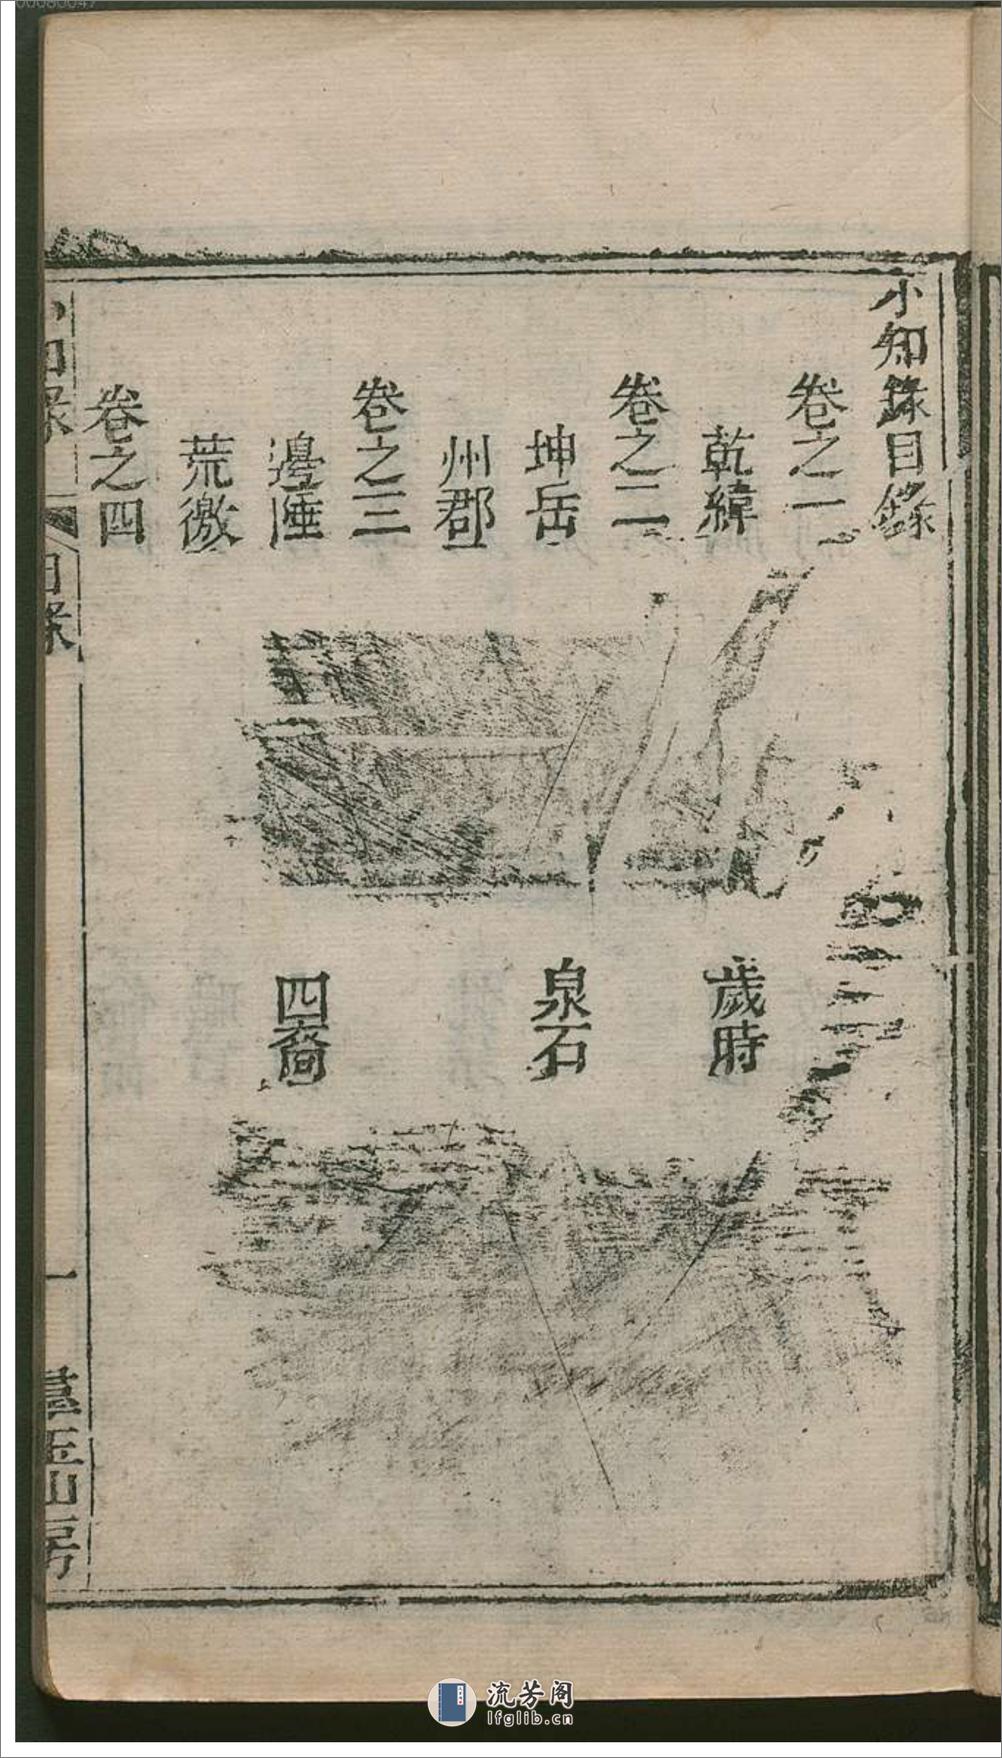 小知錄目錄
卷之一
乾緯 歲時
卷之二
坤岳 泉石
州郡
卷之三
邊陲 四裔
荒徼
卷之四
小知錄 目錄 一 羣玉山房
流芳阁
lfglib.cn